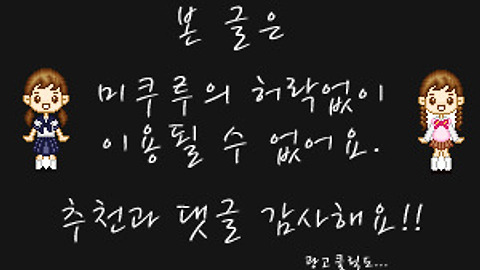 본 글은
미쿠루의 허락없이
이용될 수 없어요.
추천과 댓글 감사해요!!
광고클릭도...